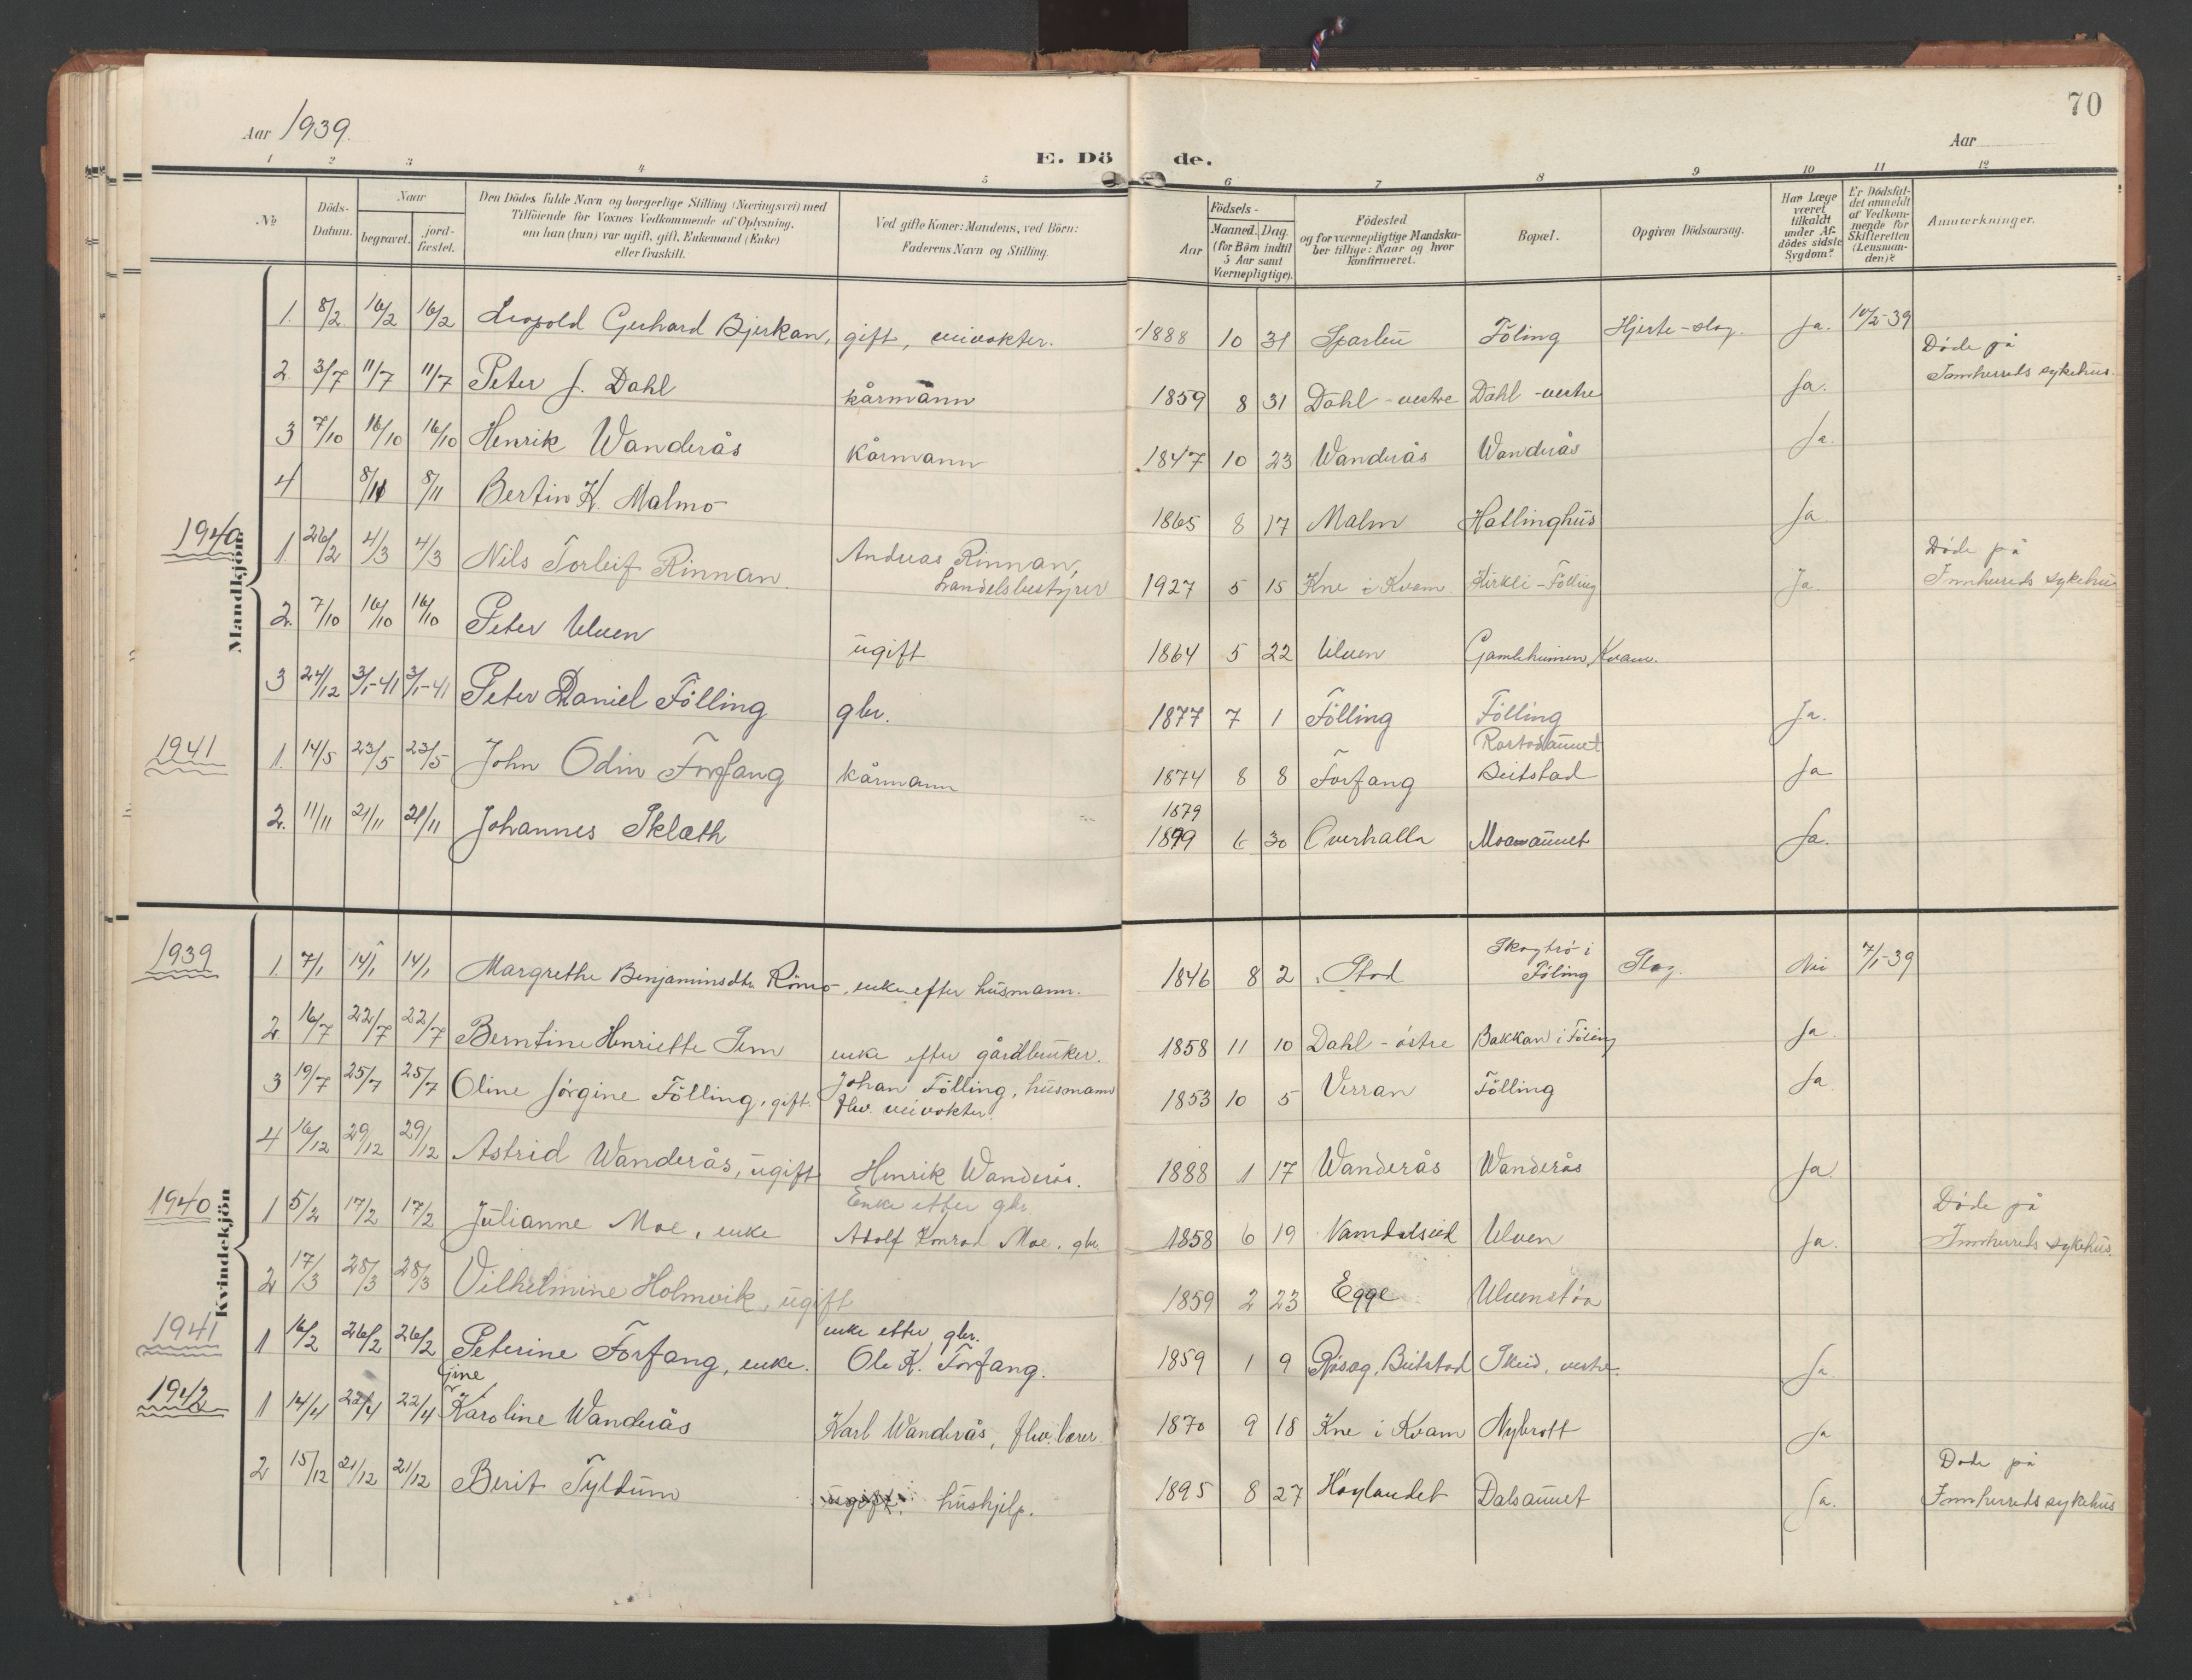 70
Aar 1939.
Aar
E. Dö de.
1 2 3 4 5 6 7 8 9 10 11 12
№
Döds-
Datum.
Naar
begravet.
jord-
fæstet.
Den Dödes fulde Navn og borgerlige Stilling (Næringsvei) med
Tilföiende for Voxnes Vedkommende af Oplysning,
om han (hun) var ugift, gift, Enkemand (Enke)
eller fraskilt.
Ved gifte Koner: Mandens, ved Börn:
Faderens Navn og Stilling.
Födsels-
Aar
Maaned. Dag.
(for Börn indtil
5 Aar samt
Værnepligtige).
Födested
og for værnepligtige Mandska-
ber tillige: Naar og hvor
konfirmeret.
Bopæl.
Opgiven Dödsaarsag.
Har Læge
været
tilkaldt
under Af-
dödes sidste
Sygdom?
Er Dödsfal-
det anmeldt
af Vedkom-
mende for
Skifteretten
(Lensman-
den)?
Anmærkninger.
Mandkjön
1. 8/2 16/2 16/2 Leopold Gerhard Bjerkan, gift, veivokter. 1888 10 31 Sparbu Föling Hjerte-slag. Ja. 10/2-39
2. 3/7 11/7 11/7 Peter J. Dahl kårmann 1859 8 31 Dahl-vestre Dahl-vestre Ja. Döde på
Innherreds sykehus.
3 7/10 16/10 16/10 Henrik Wanderås kårmann 1847 10 23 Wanderås Wanderås Ja.
4 8/11 8/11 Bertin K. Malmo 1865 8 17 Malm Hallinghus Ja
1940
1. 26/2 4/3 4/3 Nils Torleif Rinnan. Andreas Rinnan,
handelsbestyrer 1927 5 15 Kne i Kvam Kirkli-Fölling Ja. Döde på
Innherreds sykehus
2. 7/10 16/10 16/10 Peter Ulven ugift 1864 5 22 Ulven Gamleheimen, Kvam.
3 24/12 3/1-41 3/1-41 Peter Daniel Fölling gbr. 1877 7 1 Fölling Fölling Ja.
1941
1. 14/5 23/5 23/5 John Odin Forfang kårmann 1874 8 8 Forfang
Beitstad Ja
2. 11/11 21/11 21/11 Johannes Sklæth 1879
1899 6 30 Overhalla Moamaunet Ja.
Kvindekjön
1939
1. 7/1 14/1 14/1 Margrethe Benjaminsdtr. Römo, enke efter husmann. 1846 8 2 Stod
Föling Slag. Nei 7/1-39
2. 16/7 22/7 22/7 Berntine Henriette Sem enke efter gårdbruker. 1858 11 10 Dahl-östre Bakkan i Föling Ja
3 19/7 25/7 25/7 Oline Jörgine Fölling, gift. Johan Fölling, husmann
fhv. veivokter. 1853 10 5 Verran Fölling Ja
4 16/12 29/12 29/12 Astrid Wanderås, ugift Henrik Wanderås. 1888 1 17 Wanderås Wanderås Ja
1940
1 5/2 17/2 17/2 Julianne Moe, enke Enke etter gbr.
Adolf Konrad Moe. gbr. 1858 6 19 Namdalseid Ulven Ja. Döde på
Innherreds sykehus.
2 17/3 28/3 28/3 Vilhelmine Holmvik, ugift 1859 2 23 Egge Ulvenstöa
1941
1 16/2 26/2 26/2 Peterine Forfang, enke. enke etter gbr.
Ole K. Forfang. 1859 1 9 Beitstad Skeid, vestre. Ja
1942
1 14/4 22/4 22/4 gine
Karoline Wanderås Karl Wanderås, fhv. lærer. 1870 9 18 Kne i Kvam Nybrott Ja
2 15/12 21/12 21/12 Berit Tyldum ugift. hushjelp. 1895 8 27 Höylandet Dalsaunet Ja. Döde på
Innherreds sykehus